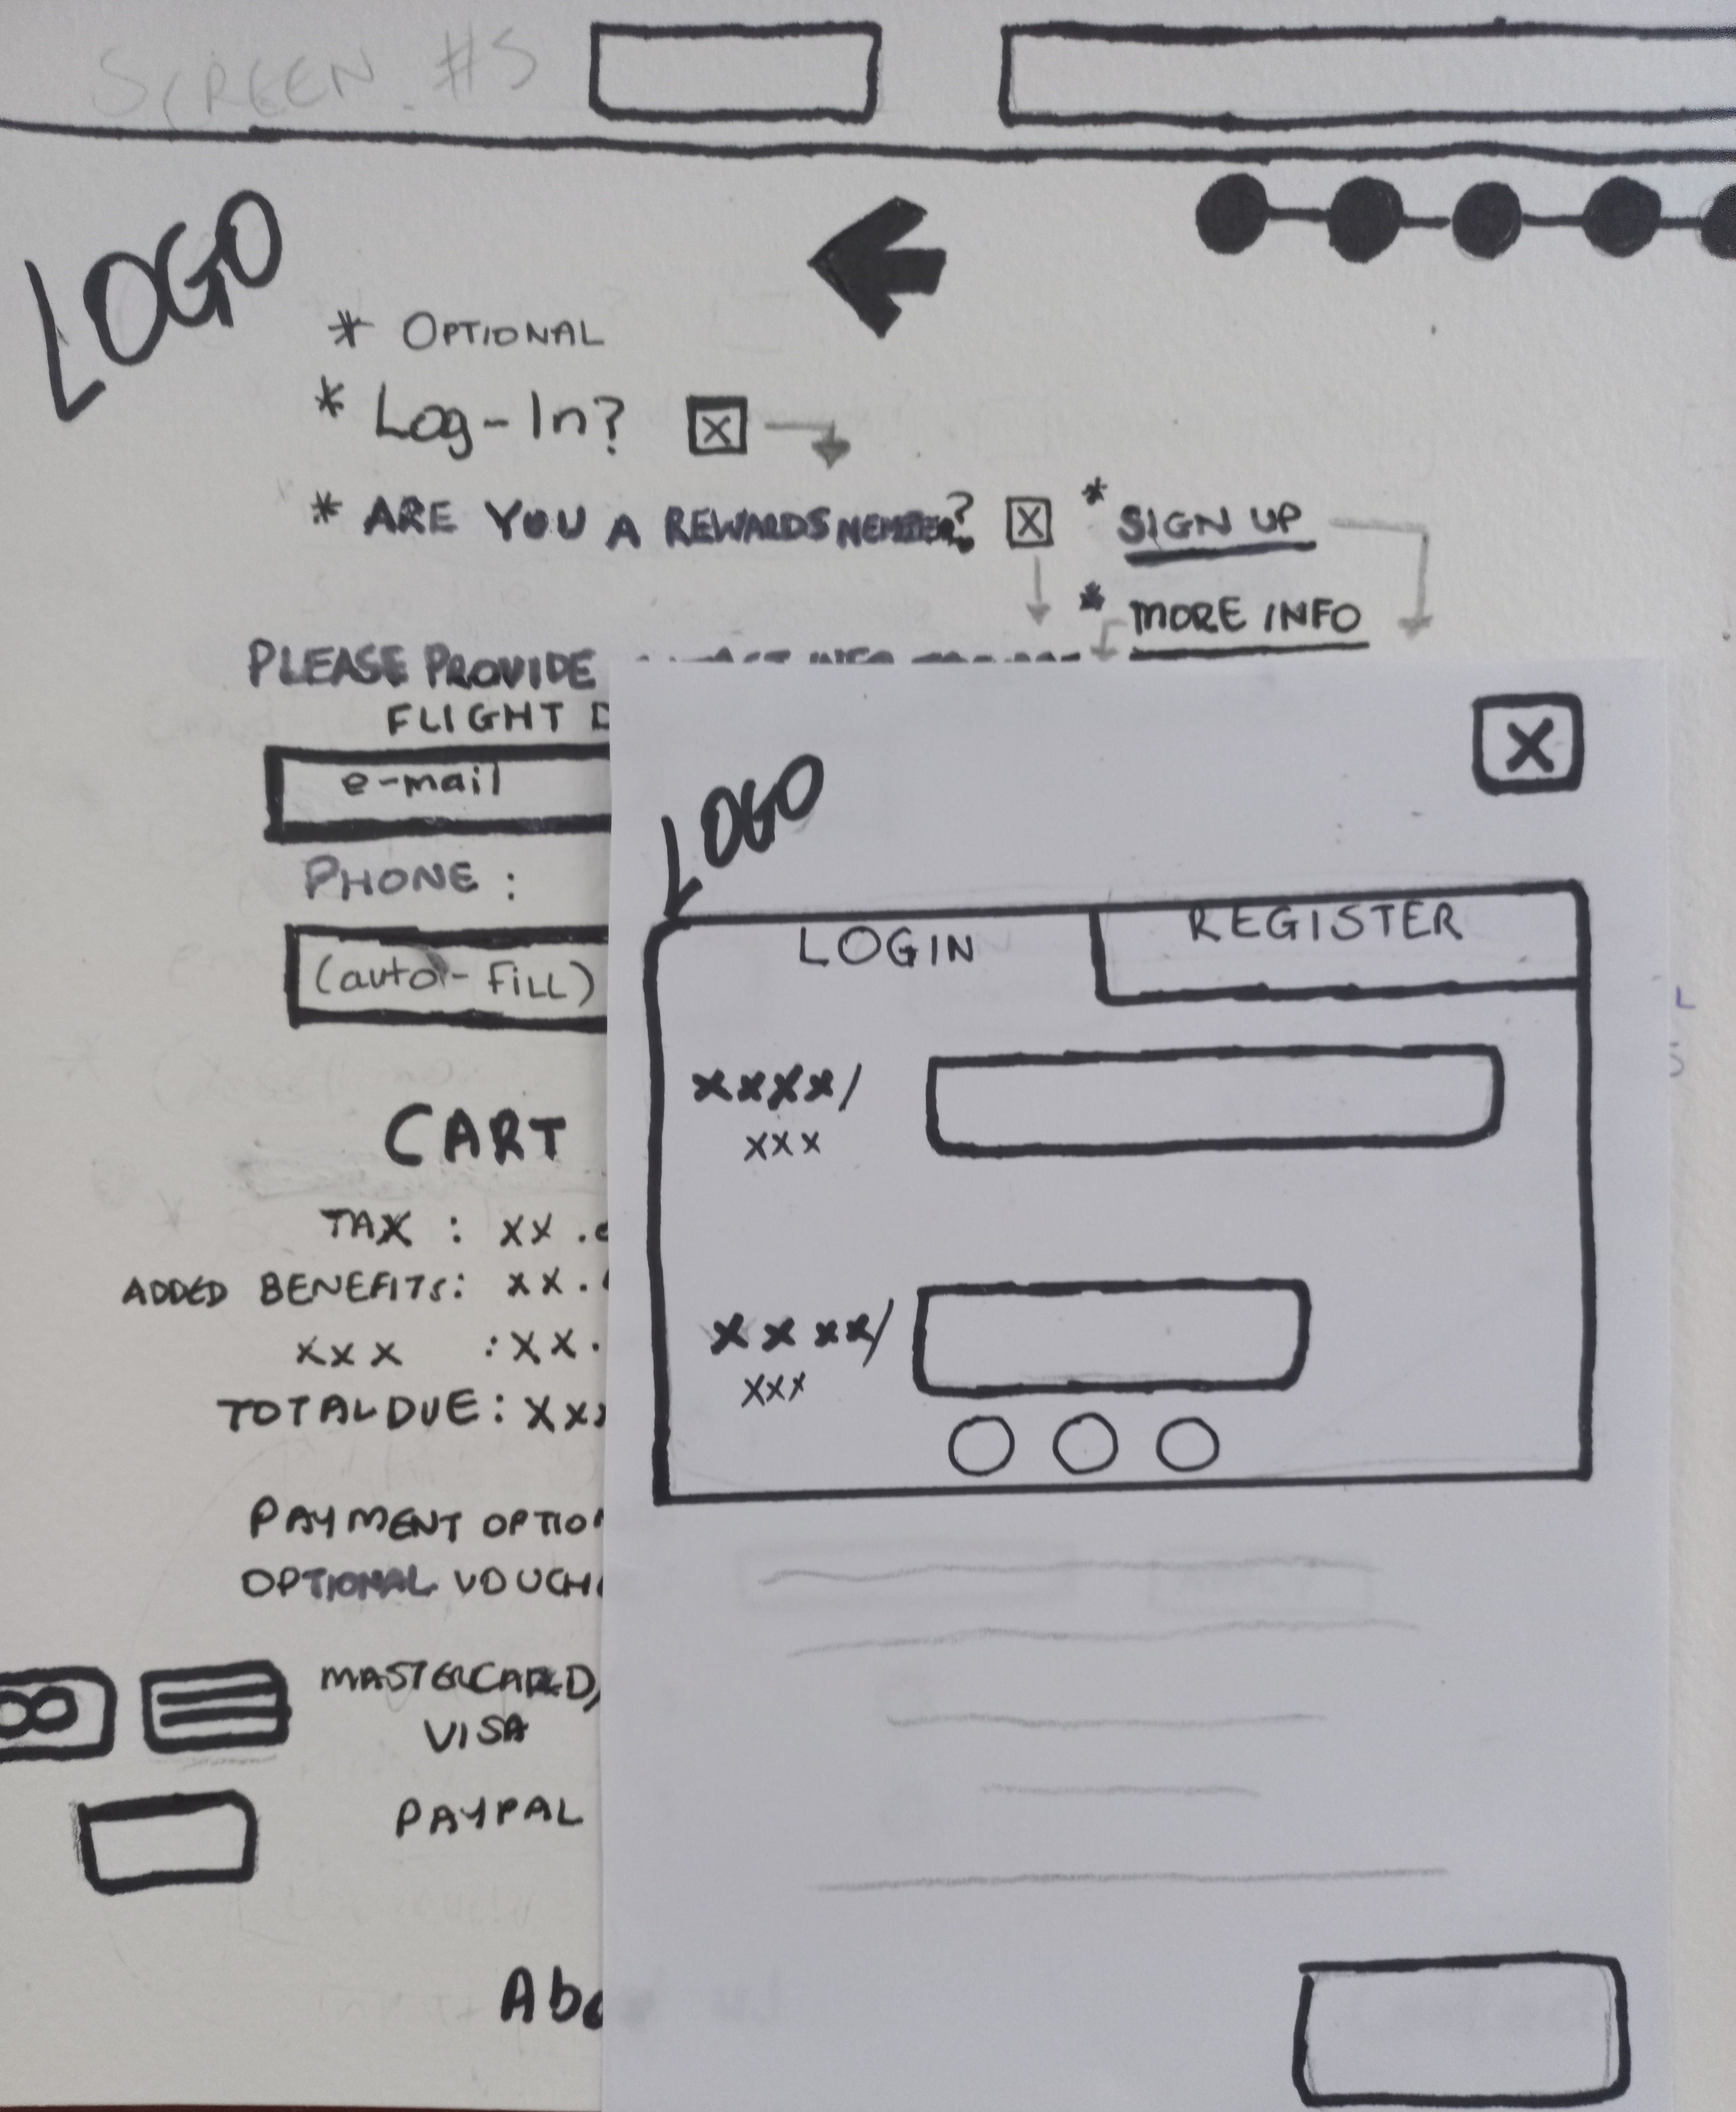 SCREEN #5
LOGO
* OPTIONAL
* Log-In? X
* ARE YOU A REWARDS MEMBER? X * SIGN UP
* MORE INFO
PLEASE PROVIDE
FLIGHT
e-mail
PHONE :
(auto-FiLL)
CART
TAX : XX.
ADDED BENEFITS: XX.
XXX :XX.
TOTAL DUE: XXX
PAYMENT OPTION
OPTIONAL VOUCH
MASTERCARD,
VISA
PAYPAL
Abo
X
LOGO
LOGIN REGISTER
xxxx/
xxx
xxxx/
xxx